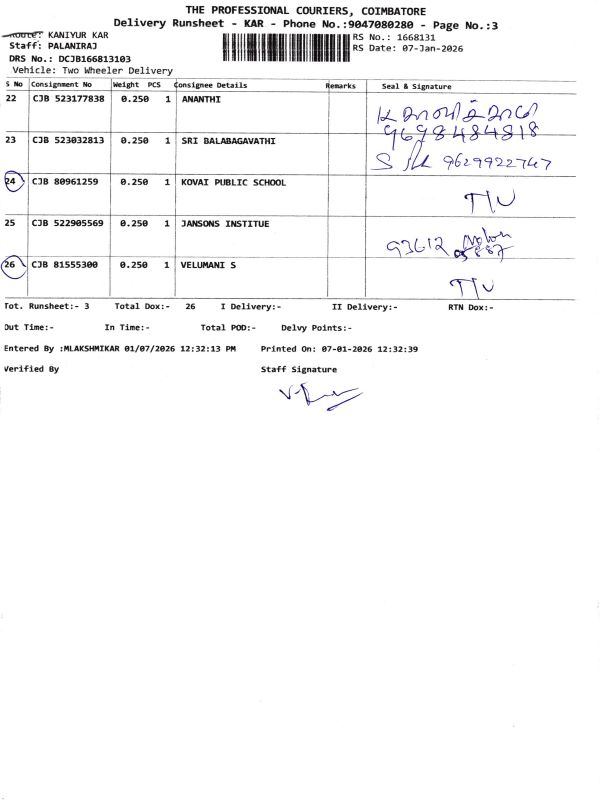 THE PROFESSIONAL COURIERS, COIMBATORE
Delivery Runsheet - KAR - Phone No.:9047080280 - Page No.:3
Route: KANIYUR KAR
RS No.: 1668131
Staff: PALANIRAJ
RS Date: 07-Jan-2026
DRS No.: DCJB166813103
Vehicle: Two Wheeler Delivery
S No Consignment No Weight PCS Consignee Details Remarks Seal & Signature
22 CJB 523177838 0.250 1 ANANTHI
9698484818
23 CJB 523032813 0.250 1 SRI BALABAGAVATHI
9629922747
24 CJB 80961259 0.250 1 KOVAI PUBLIC SCHOOL
25 CJB 522905569 0.250 1 JANSONS INSTITUE
93612
26 CJB 81555300 0.250 1 VELUMANI S
Tot. Runsheet:- 3 Total Dox:- 26 I Delivery:- II Delivery:- RTN Dox:-
Out Time:- In Time:- Total POD:- Delvy Points:-
Entered By :MLAKSHMIKAR 01/07/2026 12:32:13 PM Printed On: 07-01-2026 12:32:39
Verified By Staff Signature